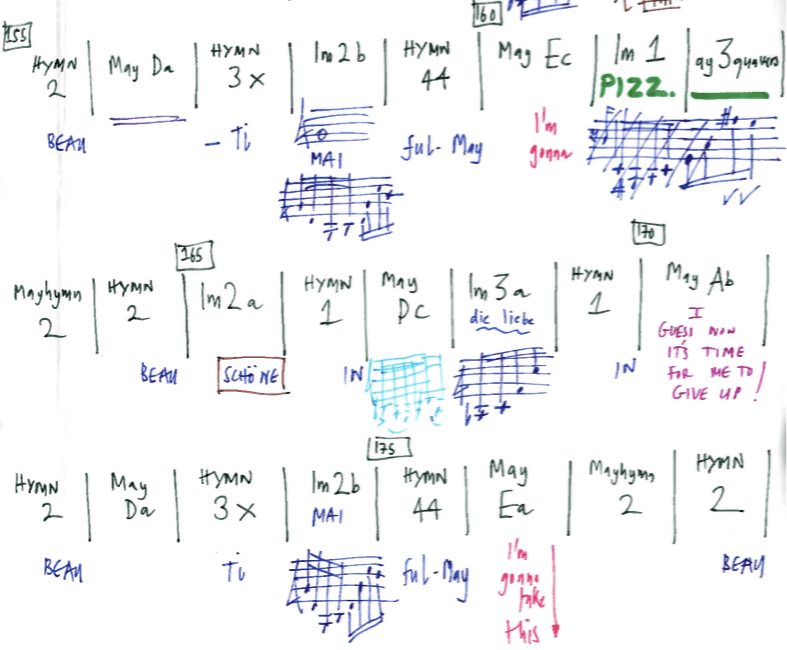 155 160
HYMN 2 May Da HYMN 3x Im2b HYMN 44 May Ec Im 1 ay 3 quavers
PIZZ.
BEAU - Ti MAI ful-May I'm gonna
165 170
Mayhymn 2 HYMN 2 Im2a HYMN 1 May Dc Im 3a HYMN 1 May Ab
die liebe
BEAU SCHÖNE IN IN I GUESS NOW IT'S TIME FOR ME TO GIVE UP!
175
HYMN 2 May Da HYMN 3x Im2b HYMN 44 May Ea Mayhymn 2 HYMN 2
MAI
BEAU Ti ful-May I'm gonna take this BEAU